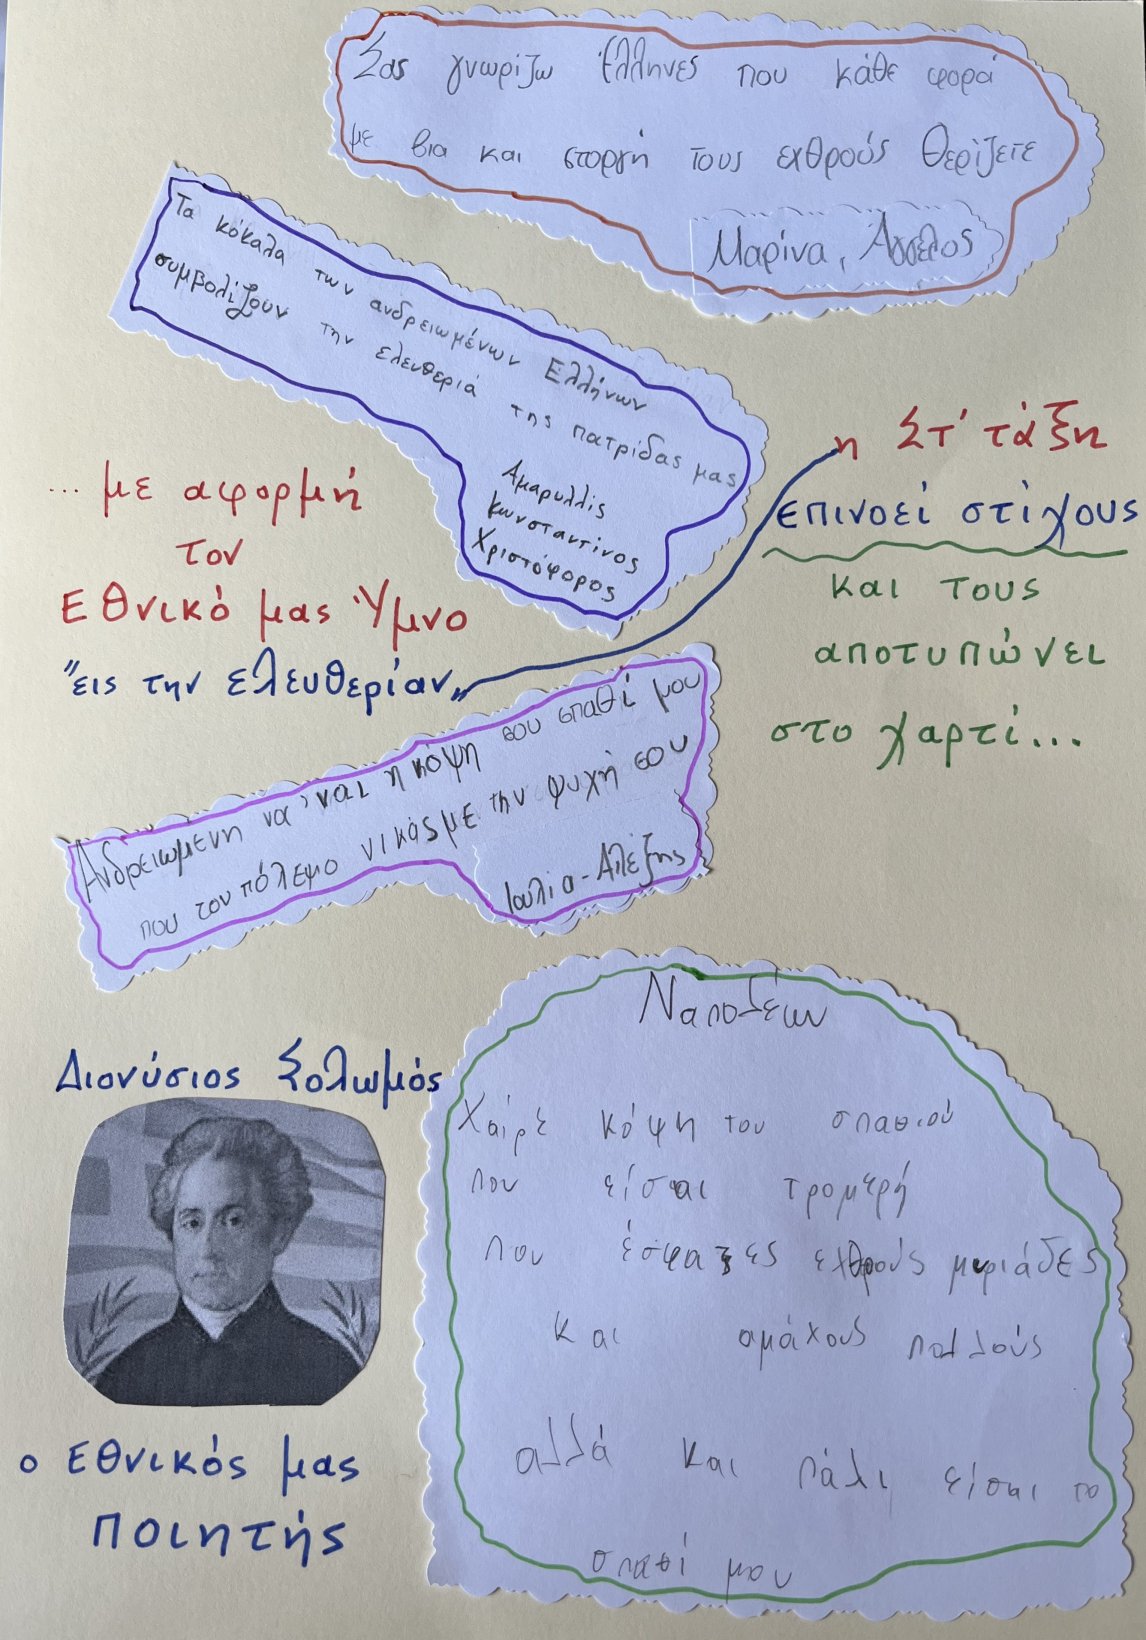 Σας γνωρίζω Έλληνες που κάθε φορά
με βια και στοργή τους εχθρούς θερίζετε
Μαρίνα, Άγγελος
Τα κόκαλα των ανδρειωμένων Ελλήνων
συμβολίζουν την ελευθεριά της πατρίδας μας
Αμαρυλλίς
Κωνσταντίνος
Χριστόφορος
... με αφορμή
τον
Εθνικό μας Ύμνο
"εις την ελευθερίαν„
η Στ' τάξη
επινοεί στίχους
και τους
αποτυπώνει
στο χαρτί...
Ανδρειωμενη να 'ναι η κόψη σου σπαθί μου
που τον πόλεμο νικάς με την ψυχή σου
Ιουλία-Αλέξης
Ναπολέων
Χαίρε κόψη του σπαθιού
που είσαι τρομερή
που έσφαξες εχθρούς μυριάδες
και αμάχους πολλούς
αλλά και πάλι είσαι το
σπαθί μου
Διονύσιος Σολωμός
ο Εθνικός μας
ποιητής